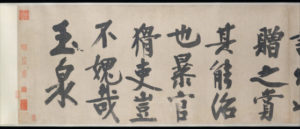 贈之賞
其能治
也暴官
猾吏豈
不愧哉
玉泉